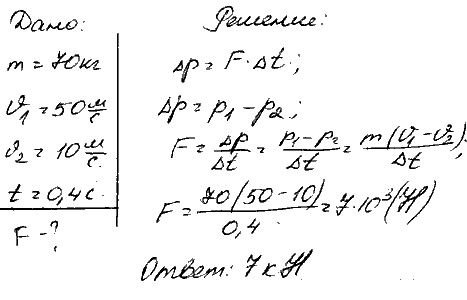 Дано:
m = 70кг
ϑ₁ = 50 м/с
ϑ₂ = 10 м/с.
t = 0,4 с.
F - ?
Решение:
Δp = F · Δt;
Δp = p₁ - p₂;
F = Δp/Δt = (p₁ - p₂)/Δt = m(ϑ₁ - ϑ₂)/Δt;
F = 70(50 - 10)/0,4 = 7 · 10³(Н)
Ответ: 7 кН